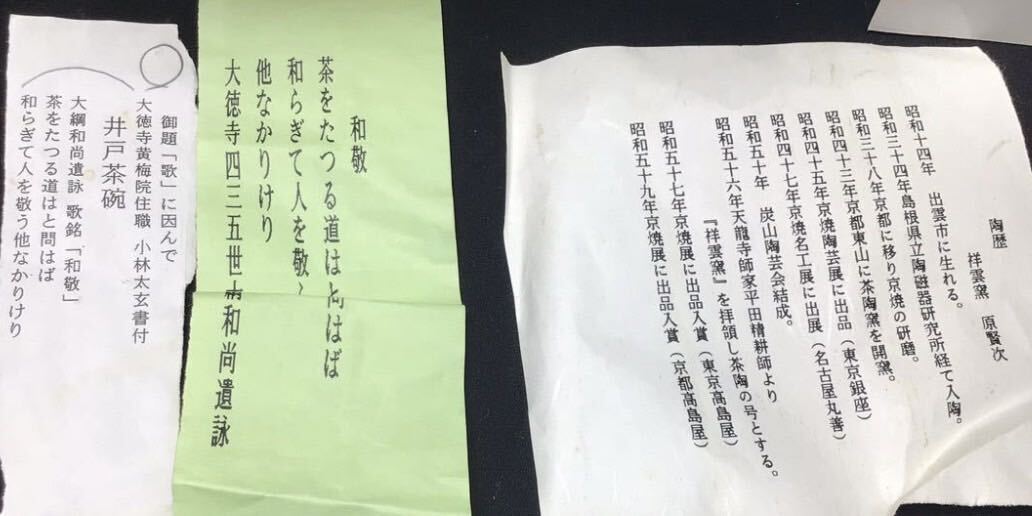 陶歴
祥雲窯　原賢次
昭和十四年　出雲市に生れる。
昭和三十四年島根県立陶磁器研究所経て入陶。
昭和三十八年京都に移り京焼の研磨。
昭和四十三年京都東山に茶陶窯を開窯。
昭和四十五年京焼陶芸展に出品（東京銀座）
昭和四十七年京焼名工展に出展（名古屋丸善）
昭和五十年　炭山陶芸会結成。
昭和五十六年天龍寺師家平田精耕師より
『祥雲窯』を拝領し茶陶の号とする。
昭和五十七年京焼展に出品入賞（東京高島屋）
昭和五十九年京焼展に出品入賞（京都高島屋）
和敬
茶をたつる道は はば
和らぎて人を敬
他なかりけり
大徳寺四三五世 和尚遺詠
御題「歌」に因んで
大徳寺黄梅院住職　小林太玄書付
井戸茶碗
大綱和尚遺詠　歌銘「和敬」
茶をたつる道はと問はば
和らぎて人を敬う他なかりけり